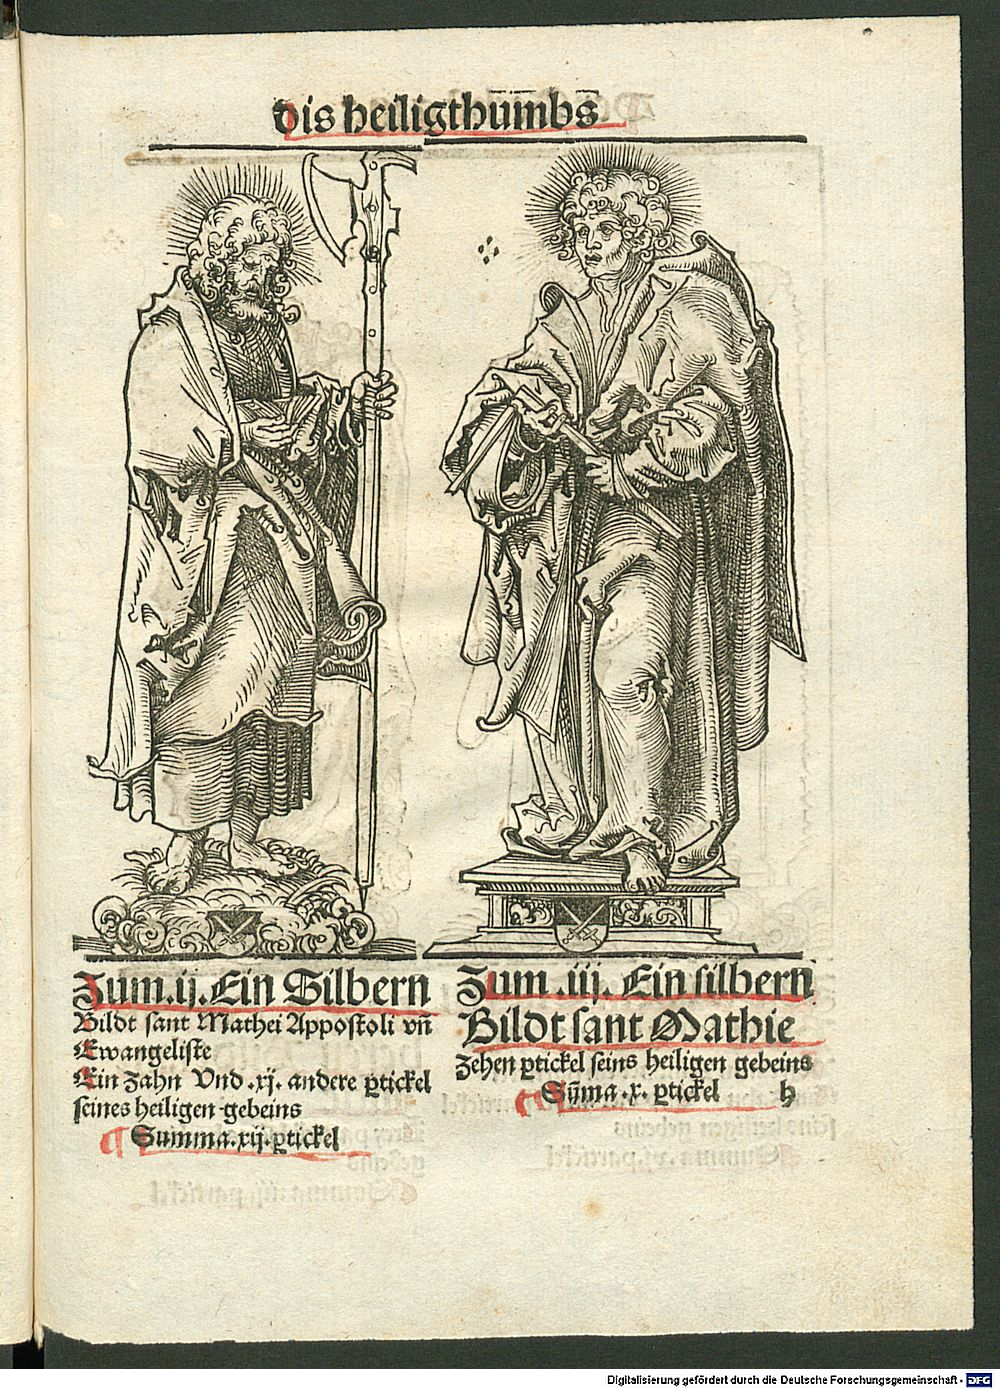 dis heiligthūmbs̄
Zum .ij. Ein Silbern
Bildt sant Mathei Appostoli vn̄
Ewangeliste
Ein Zahn Vnd .xj. andere ꝑtickel
seines heiligen gebeins
¶ Summa .xij. ꝑtickel
Zum .iij. Ein silbern
Bildt sant Mathie
Zehen ꝑtickel seins heiligen gebeins
¶ Sūma .x. ꝑtickel h
Digitalisierung gefördert durch die Deutsche Forschungsgemeinschaft - DFG